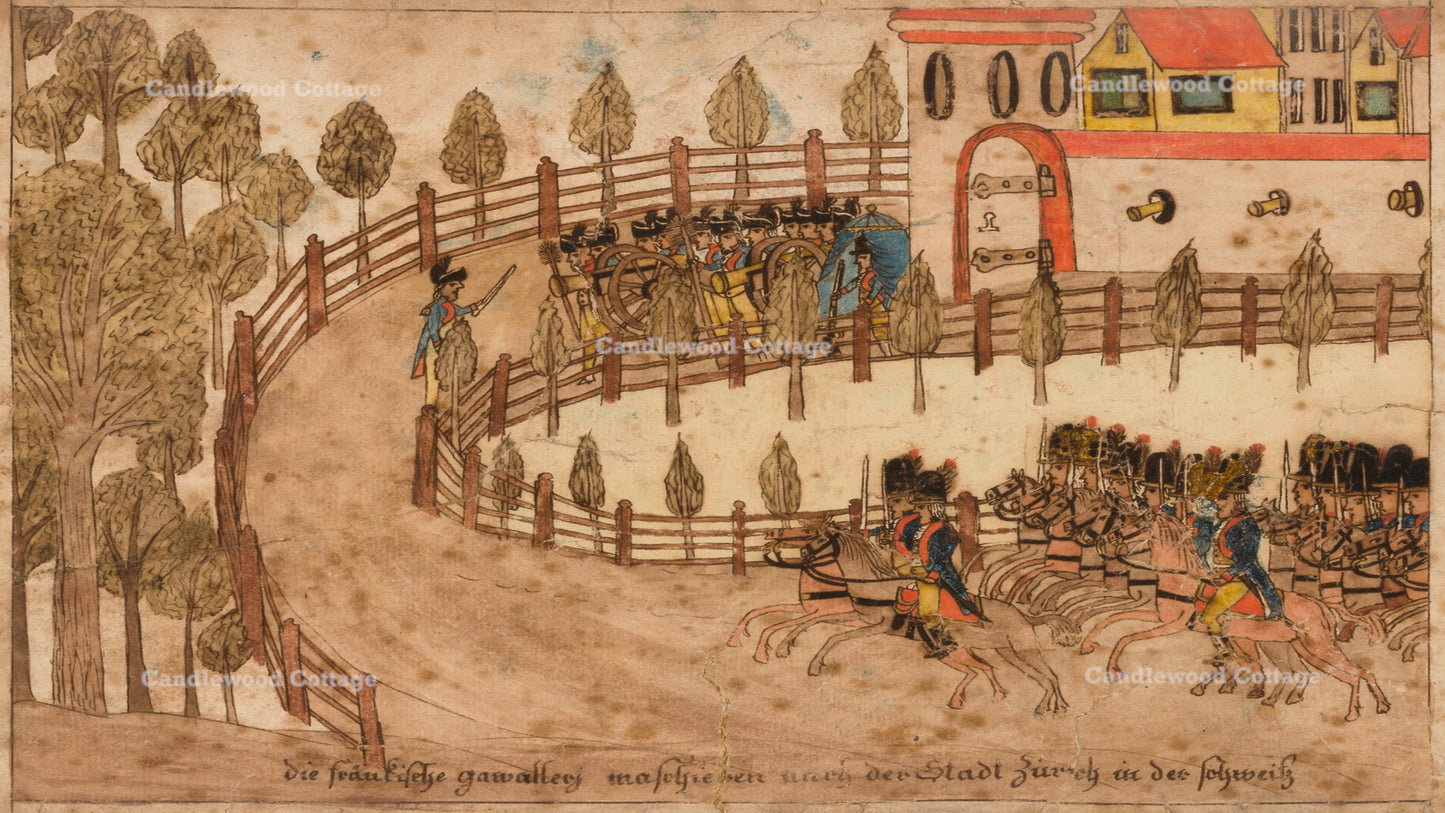 Candlewood Cottage
Candlewood Cottage
Candlewood Cottage
Candlewood Cottage
Candlewood Cottage
die fränkische gawallerj maschieren nach der Stadt Zürch in der schweitz